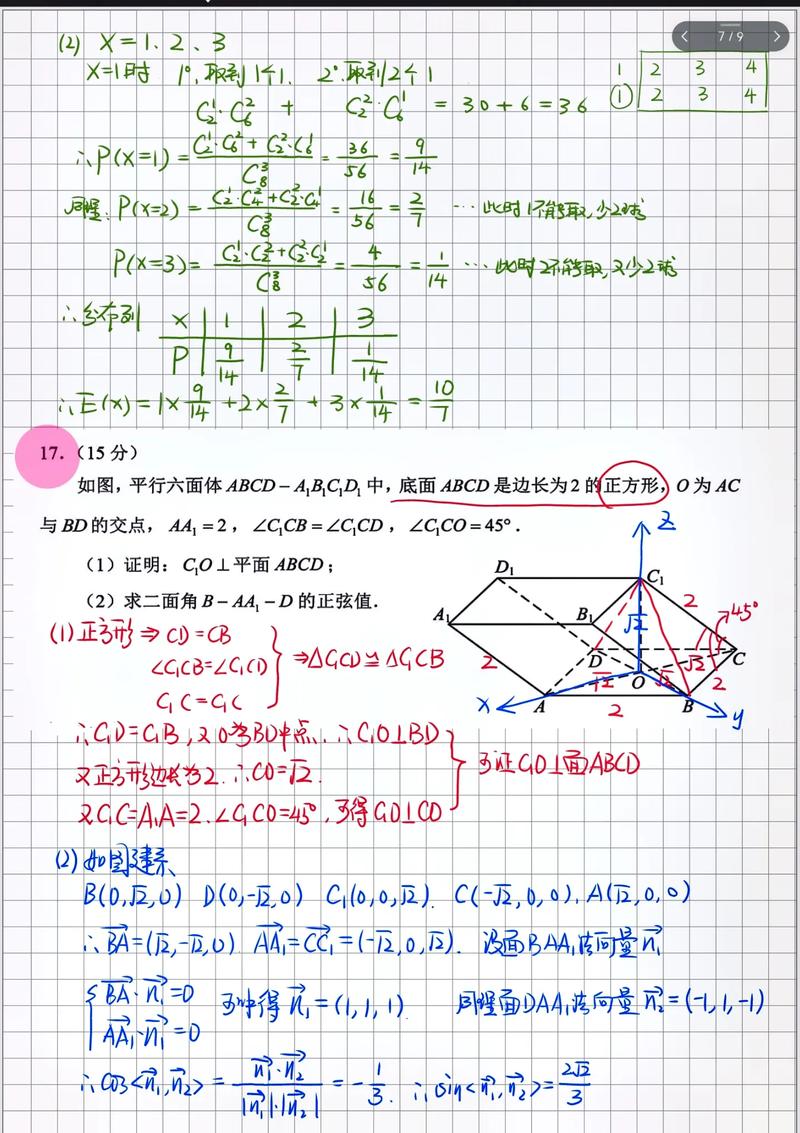 (2) X = 1、2、3
7/9
X=1时 1°.取到1个1. 2°.取到2个1
1 2 3 4
① 2 3 4
C₂¹·C₆² + C₂²·C₆¹ = 30+6 = 36
∴P(X=1) = (C₂¹·C₆² + C₂²·C₆¹)/C₈³ = 36/56 = 9/14
同理: P(X=2) = (C₂¹·C₄² + C₂²·C₄¹)/C₈³ = 16/56 = 2/7 … 此时1不能取,少2球
P(X=3) = (C₂¹·C₂² + C₂²·C₂¹)/C₈³ = 4/56 = 1/14 … 此时2不能取,又少2球
∴分布列 X 1 2 3
P 9/14 2/7 1/14
∴E(X) = 1×9/14 + 2×2/7 + 3×1/14 = 10/7
17.（15 分）
如图, 平行六面体 ABCD − A₁B₁C₁D₁ 中, 底面 ABCD 是边长为 2 的正方形, O 为 AC
与 BD 的交点, AA₁ = 2, ∠C₁CB = ∠C₁CD, ∠C₁CO = 45°.
（1）证明: C₁O ⊥ 平面 ABCD;
（2）求二面角 B − AA₁ − D 的正弦值.
z
D₁ C₁
A₁ B₁ 2 45°
√2
2 D √2 C
√2 O √2 2
x A 2 B y
(1) 正方形 ⇒ CD = CB
∠C₁CB = ∠C₁CD
C₁C = C₁C
⇒ △C₁CD ≌ △C₁CB
∴C₁D = C₁B, 又O为BD中点. ∴C₁O⊥BD
又正方形边长为2. ∴CO = √2.
又C₁C = A₁A = 2. ∠C₁CO = 45°, 可得C₁O⊥CO
可证C₁O⊥面ABCD
(2) 如图建系
B(0,√2,0) D(0,-√2,0) C₁(0,0,√2). C(-√2,0,0). A(√2,0,0)
∴BA→ = (√2,-√2,0) AA₁→ = CC₁→ = (-√2,0,√2). 设面BAA₁法向量n₁→
{ BA→·n₁→ = 0
AA₁→·n₁→ = 0
可求得n₁→ = (1,1,1) 同理面DAA₁法向量n₂→ = (-1,1,-1)
∴cos<n₁→,n₂→> = (n₁→·n₂→)/(|n₁→|·|n₂→|) = -1/3. ∴sin<n₁→,n₂→> = 2√2/3